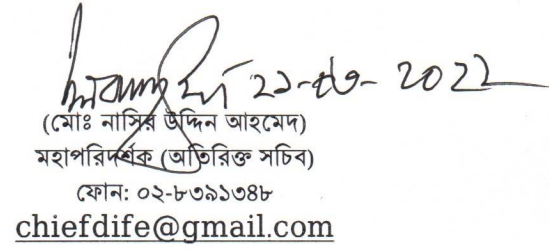 2022
(মোঃ নাসির উদ্দিন আহমেদ)
মহাপরিদর্শক (অতিরিক্ত সচিব)
ফোন: ০২-৮৩৯১৩৪৮
chiefdife@gmail.com